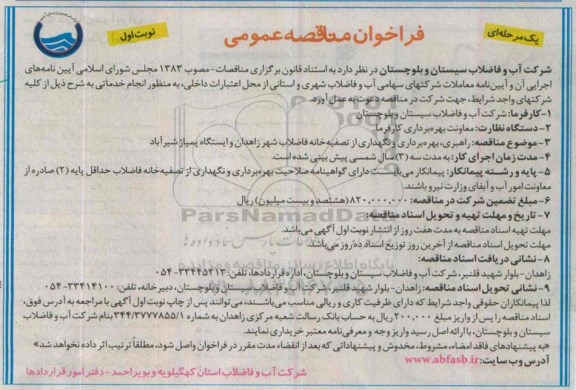 یک مرحله‌ای
فراخوان مناقصه عمومی
نوبت اول
شرکت آب و فاضلاب سیستان و بلوچستان در نظر دارد به استناد قانون برگزاری مناقصات-مصوب ۱۳۸۳ مجلس شورای اسلامی آیین نامه‌های
اجرایی آن و آیین‌نامه معاملات شرکتهای سهامی آب و فاضلاب شهری و استانی از محل اعتبارات داخلی، به منظور انجام خدماتی به شرح ذیل از کلیه
شرکتهای واجد شرایط، جهت شرکت در مناقصه دعوت به عمل آورد.
۱-کارفرما: شرکت آب و فاضلاب سیستان و بلوچستان
۲-دستگاه نظارت: معاونت بهره‌برداری کارفرما
۳-موضوع مناقصه: راهبری، بهره‌برداری و نگهداری از تصفیه‌خانه فاضلاب شهر زاهدان و ایستگاه پمپاژ شیرآباد
۴-مدت زمان اجرای کار: به مدت سه (۳) سال شمسی پیش بینی شده است.
۵-پایه و رشته پیمانکار: پیمانکار می‌بایست دارای گواهینامه صلاحیت بهره‌برداری و نگهداری از تصفیه‌خانه فاضلاب حداقل پایه (۲) صادره از
معاونت امور آب و آبفای وزارت نیرو باشند.
۶-مبلغ تضمین شرکت در مناقصه: ۸۲۰,۰۰۰,۰۰۰ (هشتصد و بیست میلیون) ریال
۷-تاریخ و مهلت تهیه و تحویل اسناد مناقصه:
مهلت تهیه اسناد مناقصه به مدت هفت روز از انتشار نوبت اول آگهی می‌باشد.
مهلت تحویل اسناد مناقصه از آخرین روز توزیع اسناد ده روز می‌باشد.
۸-نشانی دریافت اسناد مناقصه:
زاهدان-بلوار شهید قلنبر، شرکت آب و فاضلاب سیستان و بلوچستان، اداره قراردادها، تلفن: ۳۳۴۴۵۲۱۳-۰۵۴
۹-نشانی تحویل اسناد مناقصه: زاهدان-بلوار شهید قلنبر، شرکت آب و فاضلاب سیستان و بلوچستان، دبیرخانه، تلفن: ۳۳۴۱۴۱۰۰-۰۵۴
لذا پیمانکاران حقوقی واجد شرایط که دارای ظرفیت کاری و ریالی مناسب می‌باشند، می‌توانند پس از چاپ نوبت اول آگهی با مراجعه به آدرس فوق،
اسناد مناقصه را پس از واریز مبلغ ۲۰۰,۰۰۰ ریال به حساب بانک رسالت شعبه مرکزی زاهدان به شماره ۳۴۴/۳۷۷۷۸۵۵/۱ بنام شرکت آب و فاضلاب
سیستان و بلوچستان، با ارائه اصل رسید واریز وجه و معرفی‌نامه معتبر خریداری نمایند.
«به پیشنهادهای فاقد امضاء، مشروط، مخدوش و پیشنهاداتی که بعد از انقضاء مدت مقرر در فراخوان واصل شود، مطلقاً ترتیب اثر داده نخواهد شد»
آدرس وب سایت: www.abfasb.ir
شرکت آب و فاضلاب استان کهگیلویه و بویراحمد - دفتر امور قراردادها
ParsNamadData